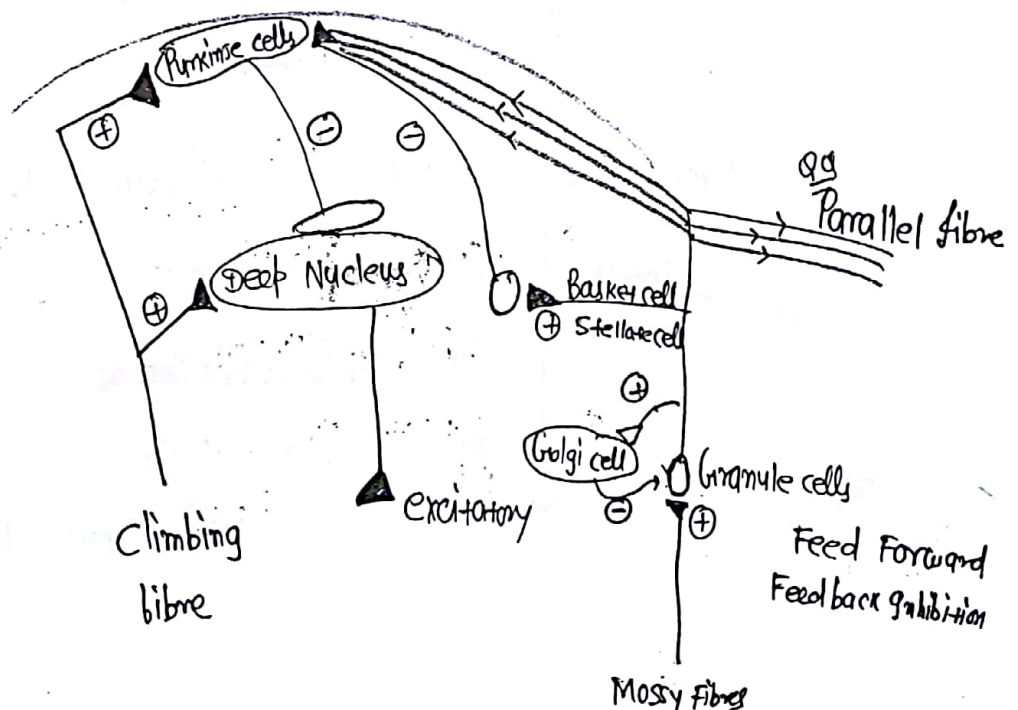 Purkinse cells
+
-
-
Qg
Parallel fibre
Deep Nucleus
+
Basket cell
+ Stellate cell
+
Golgi cell
Granule cells
-
+
excitatory
Climbing
fibre
Feed Forward
Feedback Inhibition
Mossy Fibres